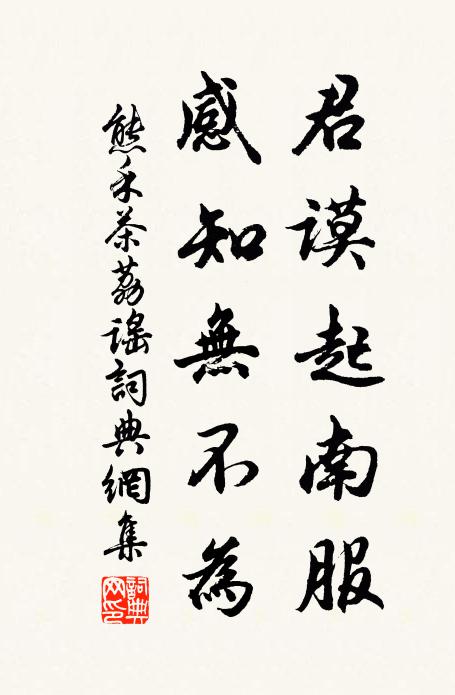 君謨起南服
感知無不為
熊禾茶荔謠詞典網集
詞典網印